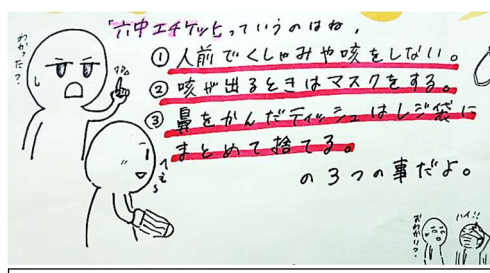 「六中エチケット」っていうのはね、
わかった?
①人前でくしゃみや咳をしない。
②咳が出るときはマスクをする。
③鼻をかんだティッシュはレジ袋に
まとめて捨てる。
へぇ〜
の3つの事だよ。
ハイ!!
おわかり?